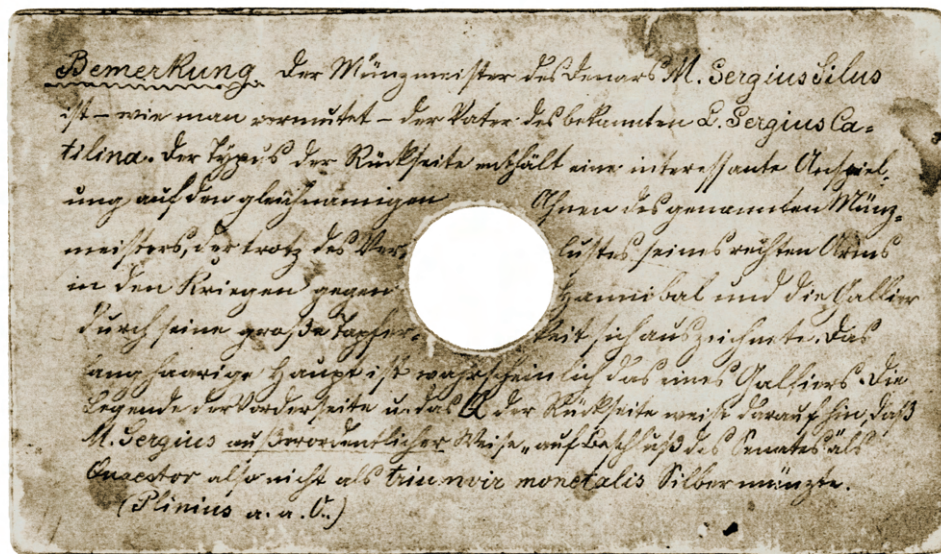 Bemerkung. Der Münzmeister des Denars M. Sergius Silus
ist – wie man vermutet – der Vater des bekannten L. Sergius Ca-
tilina. Der Typus der Rückseite enthält eine interessante Anspiel-
ung auf den gleichnamigen Ahnen des genannten Münz-
meisters, der trotz des Ver- lustes seines rechten Arms
in den Kriegen gegen Hannibal und die Gallier
durch seine große Tapfer- keit sich auszeichnete. Das
langhaarige Haupt ist wahrscheinlich das eines Galliers. Die
Legende der Vorderseite u. das Q der Rückseite weist darauf hin, daß
M. Sergius außerordentlicher Weise „auf Beschluß des Senates" als
Quaestor also nicht als triumvir monetalis Silber münzte.
(Plinius a. a. O.)